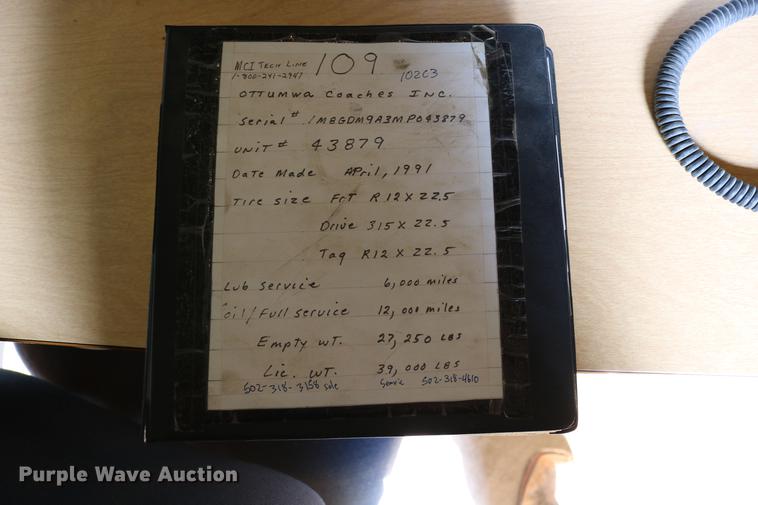 MCI Tech Line 109
1-800-241-2947 102C3
Ottumwa Coaches Inc.
Serial # 1M8GDM9A3MP043879
Unit # 43879
Date Made April, 1991
Tire Size FrT R 12 X 22.5
Drive 315 X 22.5
Tag R12 X 22.5
Lub Service 6,000 miles
Oil/Full Service 12,000 miles
Empty WT. 27,250 LBS
Lic. WT. 39,000 LBS
502-318-3158 sale Service 502-318-4610
Purple Wave Auction